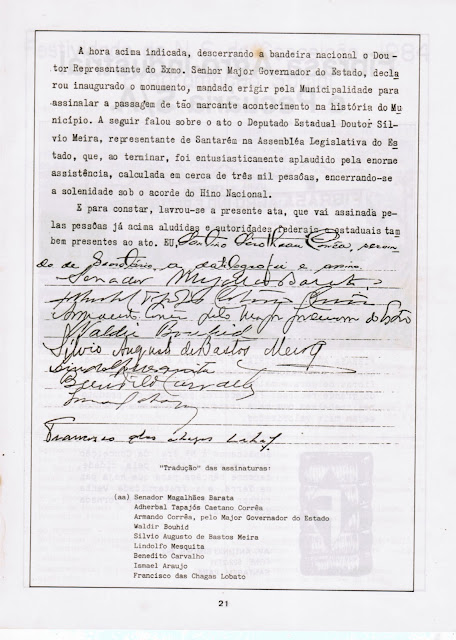 A hora acima indicada, descerrando a bandeira nacional o Dou-
tor Representante do Exmo. Senhor Major Governador do Estado, decla
rou inaugurado o monumento, mandado erigir pela Municipalidade para
assinalar a passagem de tão marcante acontecimento na história do Mu
nicípio. A seguir falou sobre o ato o Deputado Estadual Doutor Síl-
vio Meira, representante de Santarém na Assembléa Legislativa do Es
tado, que, ao terminar, foi entusiasticamente aplaudido pela enorme
assistência, calculada em cerca de três mil pessôas, encerrando-se
a solenidade sob o acorde do Hino Nacional.
E para constar, lavrou-se a presente ata, que vai assinada pe-
las pessôas já acima aludidas e autoridades federais e estaduais tam
bem presentes ao ato. EU,
do de Secretário, a datilografei e assino.
Senador Magalhães Barata
Adherbal Tapajós Caetano Corrêa
Armando Corrêa, pelo Major Governador do Estado
Waldir Bouhid
Silvio Augusto de Bastos Meira
Lindolfo Mesquita
Benedito Carvalho
Ismael Araujo
Francisco das Chagas Lobato
"Tradução" das assinaturas:
(aa) Senador Magalhães Barata
Adherbal Tapajós Caetano Corrêa
Armando Corrêa, pelo Major Governador do Estado
Waldir Bouhid
Silvio Augusto de Bastos Meira
Lindolfo Mesquita
Benedito Carvalho
Ismael Araujo
Francisco das Chagas Lobato
21